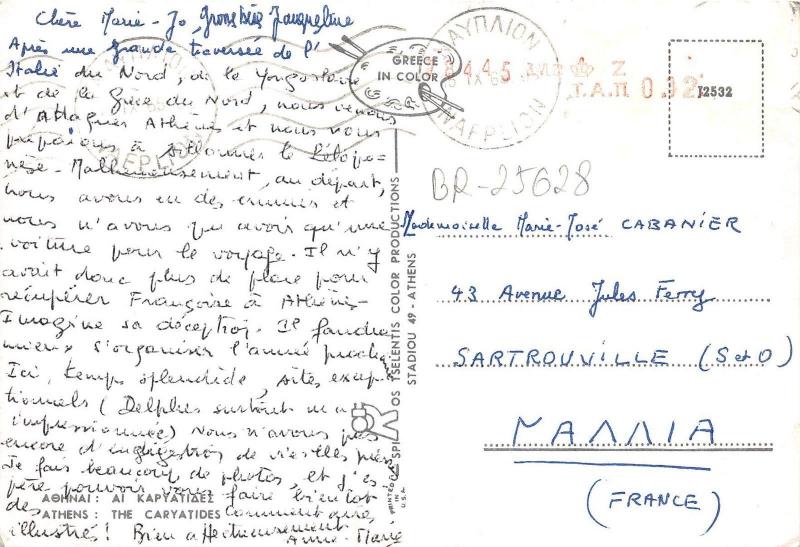 Chère Marie-Jo,
Après une grande traversée de l'
Italie du Nord, de la Yougoslavie
et de la Grèce du Nord, nous venons
d'atteindre Athènes et nous nous
préparons à sillonner le Pélopo-
nèse. Malheureusement, au départ,
nous avons eu des ennuis et
nous n'avons pu avoir qu'une
voiture pour le voyage. Il n'y
avait donc plus de place pour
récupérer Françoise à Athènes.
Imagine sa déception. Il faudra
mieux s'organiser l'année prochaine
Ici, temps splendide, sites excep-
tionnels (Delphes surtout m'a
impressionnée) Nous n'avons pas
encore d'indigestion de vieilles pierres
Je fais beaucoup de photos, et j'es-
père pouvoir vous faire bientôt
des commentaires
illustrés! Bien affectueusement
Anne-Marie
ΑΘΗΝΑΙ: ΑΙ ΚΑΡΥΑΤΙΔΕΣ
ATHENS: THE CARYATIDES
GREECE
IN COLOR
ΝΑΥΠΛΙΟΝ
NAFPLION
ΝΑΥΠΛΙΟΝ
NAFPLION
Τ.Α.Π 0.02
J2532
BR-25628
SPILIOS TSELENTIS COLOR PRODUCTIONS
STADIOU 49 - ATHENS
PRINTED IN
U.S.A.
Mademoiselle Marie-José CABANIER
43 Avenue Jules Ferry
SARTROUVILLE (S et O)
ΓΑΛΛΙΑ
(FRANCE)